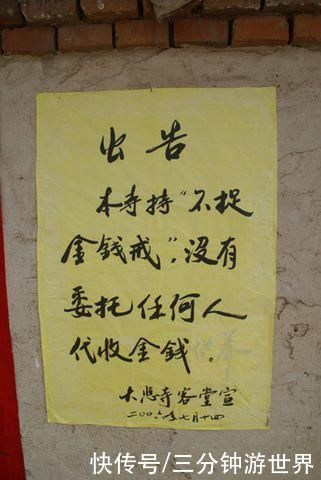 出告
本寺持“不捉
金錢戒”,没有
委托任何人
代收金錢。
大悲寺客堂宣
二00六年七月十四
快传号/三分钟游世界